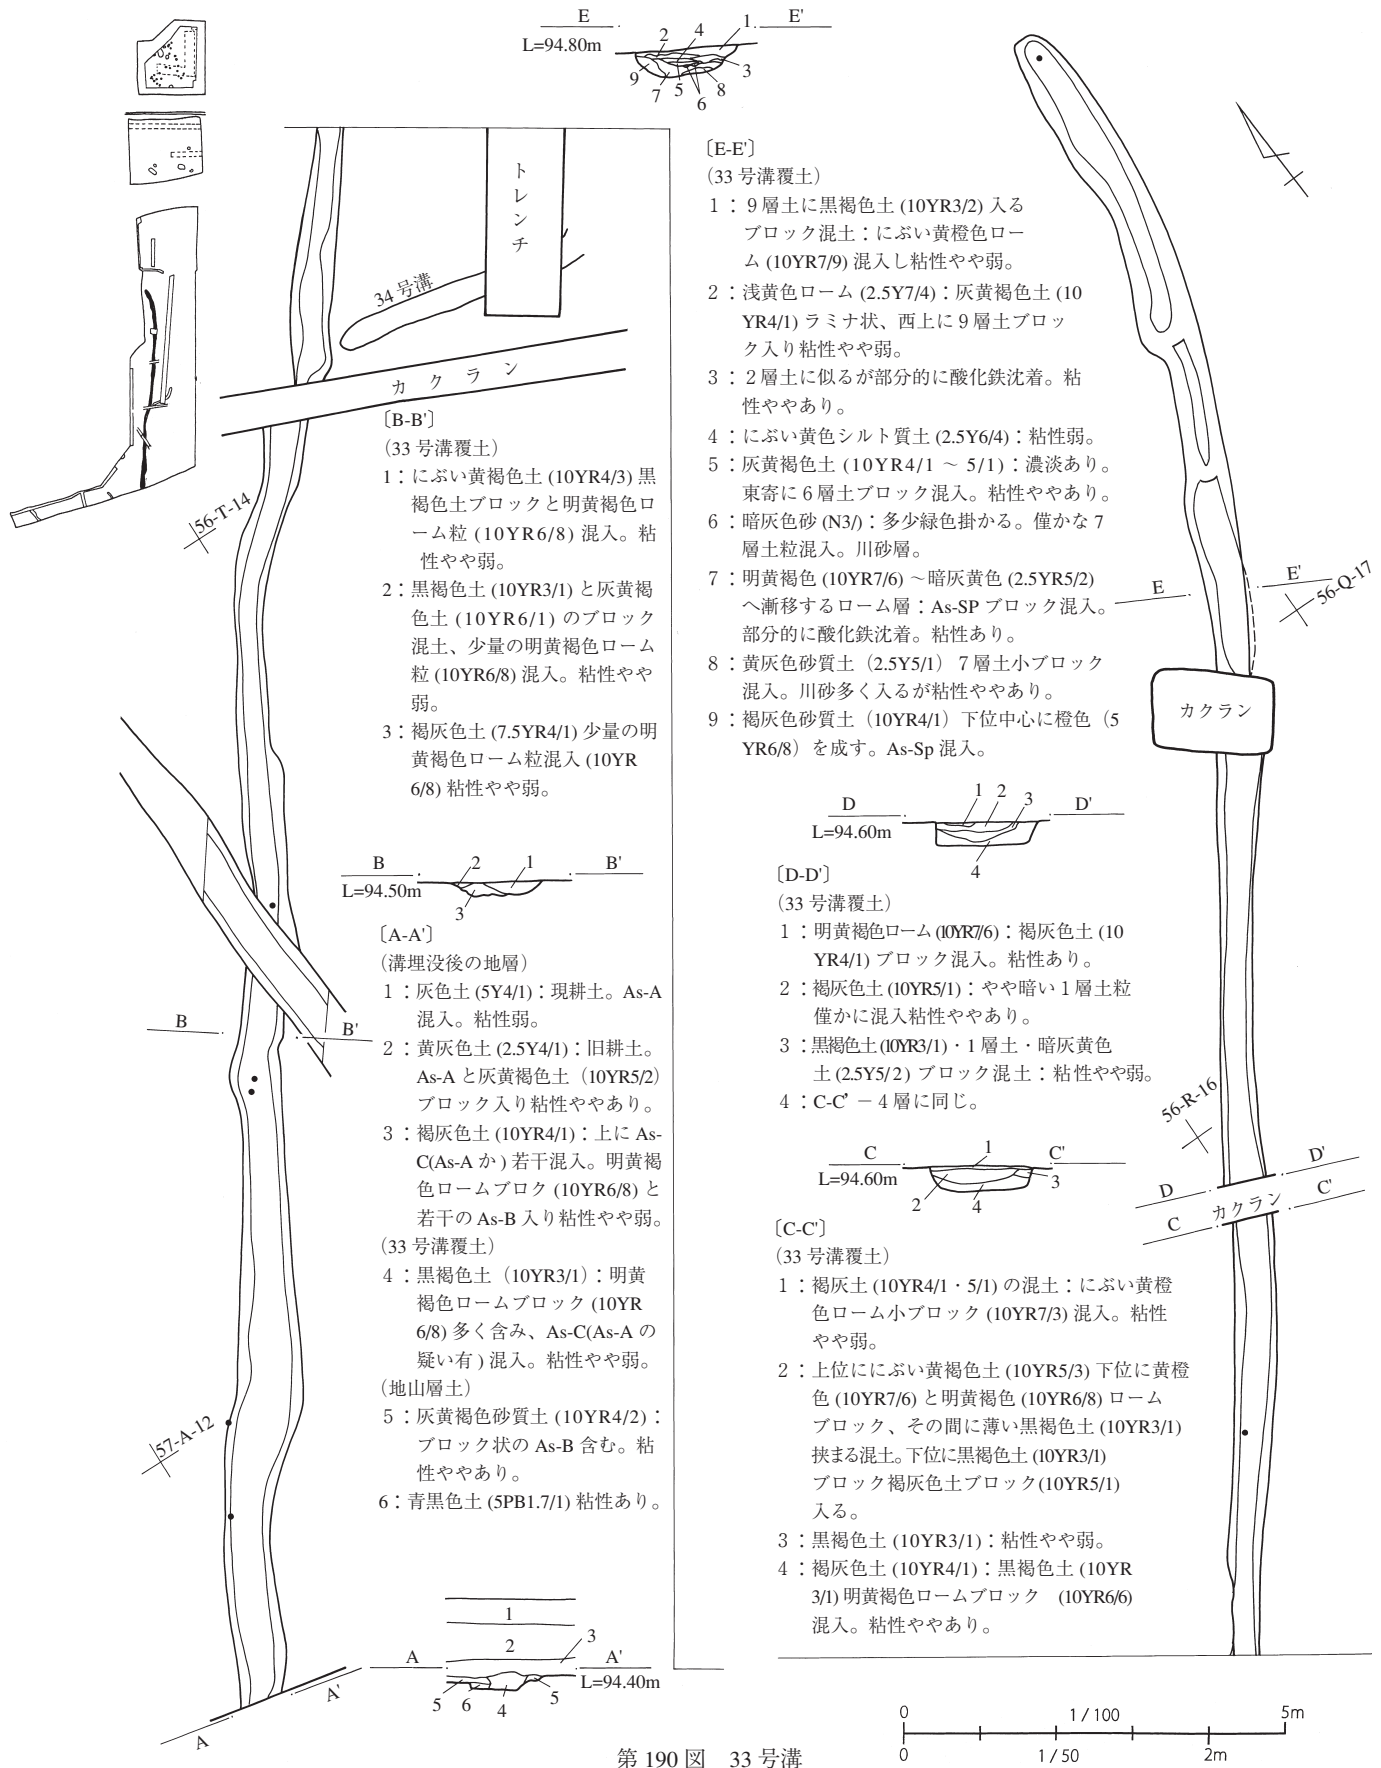 E
E'
L=94.80m
1
2
4
3
9
7
5
6
8
トレンチ
34 号溝
カクラン
56-T-14
〔B-B'〕
（33 号溝覆土）
1：にぶい黄褐色土 (10YR4/3) 黒
褐色土ブロックと明黄褐色ロ
ーム粒 (10YR6/8) 混入。粘
性やや弱。
2：黒褐色土 (10YR3/1) と灰黄褐
色土 (10YR6/1) のブロック
混土、少量の明黄褐色ローム
粒 (10YR6/8) 混入。粘性やや
弱。
3：褐灰色土 (7.5YR4/1) 少量の明
黄褐色ローム粒混入 (10YR
6/8) 粘性やや弱。
B
B'
L=94.50m
2
1
3
B
B'
〔A-A'〕
（溝埋没後の地層）
1：灰色土 (5Y4/1)：現耕土。As-A
混入。粘性弱。
2：黄灰色土 (2.5Y4/1)：旧耕土。
As-A と灰黄褐色土（10YR5/2）
ブロック入り粘性ややあり。
3：褐灰色土 (10YR4/1)：上に As-
C(As-A か ) 若干混入。明黄褐
色ロームブロク (10YR6/8) と
若干の As-B 入り粘性やや弱。
（33 号溝覆土）
4：黒褐色土（10YR3/1）：明黄
褐色ロームブロック (10YR
6/8) 多く含み、As-C(As-A の
疑い有 ) 混入。粘性やや弱。
（地山層土）
5：灰黄褐色砂質土（10YR4/2）：
ブロック状の As-B 含む。粘
性ややあり。
6：青黒色土 (5PB1.7/1) 粘性あり。
57-A-12
1
2
3
A
A'
L=94.40m
5
6
4
5
A
A'
〔E-E'〕
（33 号溝覆土）
1：9 層土に黒褐色土 (10YR3/2) 入る
ブロック混土：にぶい黄橙色ロー
ム (10YR7/9) 混入し粘性やや弱。
2：浅黄色ローム (2.5Y7/4)：灰黄褐色土 (10
YR4/1) ラミナ状、西上に 9 層土ブロッ
ク入り粘性やや弱。
3：2 層土に似るが部分的に酸化鉄沈着。粘
性ややあり。
4：にぶい黄色シルト質土 (2.5Y6/4)：粘性弱。
5：灰黄褐色土 (10YR4/1 ～ 5/1)：濃淡あり。
東寄に 6 層土ブロック混入。粘性ややあり。
6：暗灰色砂 (N3/)：多少緑色掛かる。僅かな 7
層土粒混入。川砂層。
7：明黄褐色 (10YR7/6) ～暗灰黄色 (2.5YR5/2)
へ漸移するローム層：As-SP ブロック混入。
部分的に酸化鉄沈着。粘性あり。
8：黄灰色砂質土（2.5Y5/1）7 層土小ブロック
混入。川砂多く入るが粘性ややあり。
9：褐灰色砂質土（10YR4/1）下位中心に橙色（5
YR6/8）を成す。As-Sp 混入。
E
E'
56-Q-17
カクラン
D
D'
L=94.60m
1
2
3
4
〔D-D'〕
（33 号溝覆土）
1：明黄褐色ローム (10YR7/6)：褐灰色土 (10
YR4/1) ブロック混入。粘性あり。
2：褐灰色土 (10YR5/1)：やや暗い 1 層土粒
僅かに混入粘性ややあり。
3：黒褐色土 (10YR3/1)・1 層土・暗灰黄色
土 (2.5Y5/2 ) ブロック混土：粘性やや弱。
4：C-C’ － 4 層に同じ。
C
C'
L=94.60m
1
2
4
3
〔C-C'〕
（33 号溝覆土）
1：褐灰土 (10YR4/1・5/1) の混土：にぶい黄橙
色ローム小ブロック (10YR7/3) 混入。粘性
やや弱。
2：上位ににぶい黄褐色土 (10YR5/3) 下位に黄橙
色 (10YR7/6) と明黄褐色 (10YR6/8) ローム
ブロック、その間に薄い黒褐色土 (10YR3/1)
挟まる混土。下位に黒褐色土 (10YR3/1)
ブロック褐灰色土ブロック(10YR5/1)
入る。
3：黒褐色土（10YR3/1）：粘性やや弱。
4：褐灰色土（10YR4/1）：黒褐色土 (10YR
3/1) 明黄褐色ロームブロック　(10YR6/6)
混入。粘性ややあり。
56-R-16
D
D'
カクラン
C
C'
0
1 / 100
5m
0
1 / 50
2m
第 190 図　33 号溝